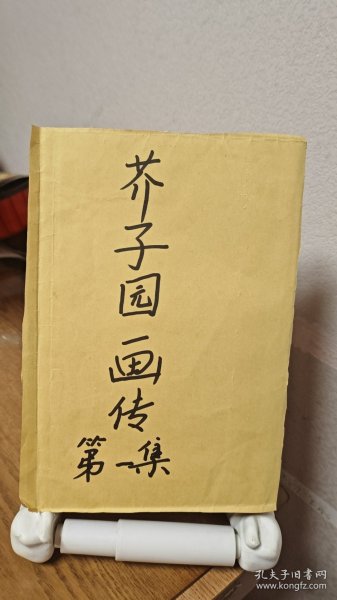 芥子园画传
第一集
孔夫子旧书网
www.kongfz.com